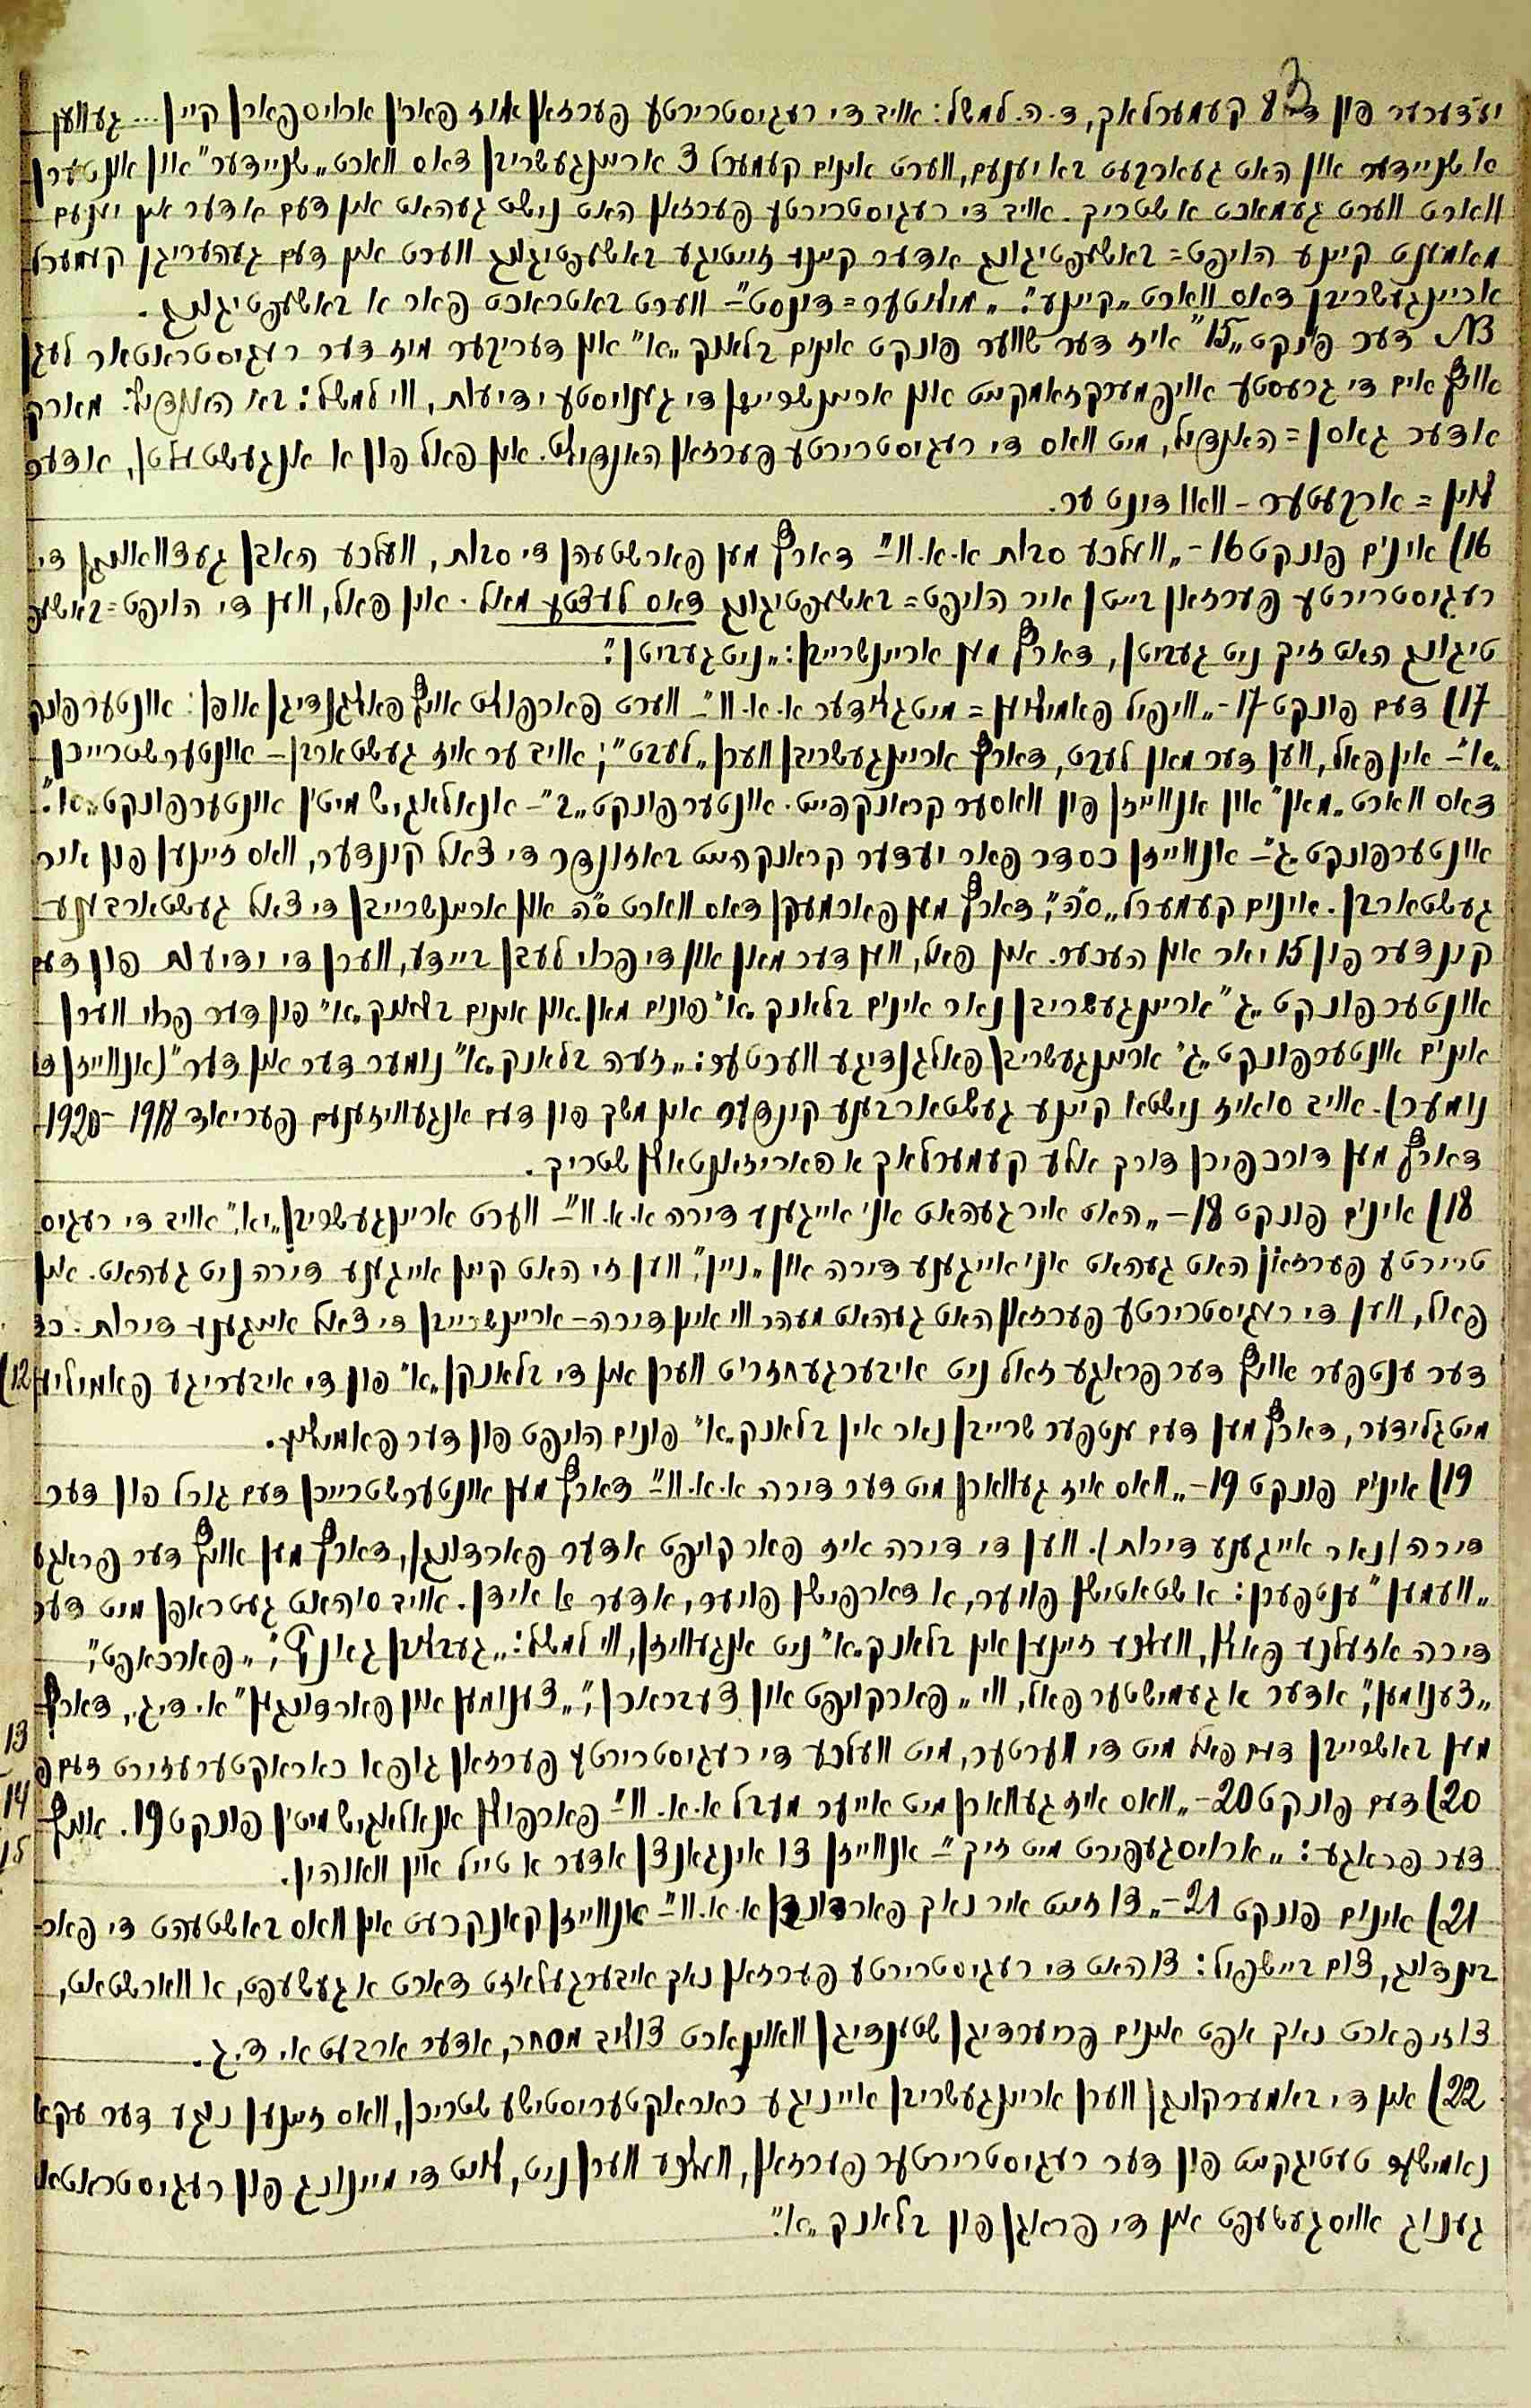 3
יעדערער פון די 8 קעמערלאך, ד.ה. למשל: אויב די רעגיסטרירטע פערזאן איז פארן ארויספארן קיין ... געווען
א שניידער און האט געארבעט בא יענעם, ווערט אינים קעמערל 3 אריינגעשריבן דאס ווארט „שניידער" און אונטערן
ווארט ווערט געמאכט א שטריך. אויב די רעגיסטרירטע פערזאן האט נישט געהאט אין דעם אדער אין יענעם
מאמענט קיינע הויפט=באשעפטיגונג אדער קיינע זייטיגע באשעפטיגונג ווערט אין דעם געהעריגן קעמערל
אריינגעשריבן דאס ווארט „קיינע". „מיליטער=דינסט" – ווערט באטראכט פאר א באשעפטיגונג.
NB דער פונקט „15" איז דער שווער פונקט אינים בלאנק „א" און דעריבער מוז דער רעגיסטראטאר לעגן
אויף אים די גרעסטע אויפמערקזאמקייט און אריינשרייבן די גענויסטע ידיעות, ווי למשל: בא האנדיל: מארק
אדער גאסן=האנדיל, מיט וואס די רעגיסטרירטע פערזאן האנדילט. אין פאל פון א אנגעשטעלטן, אדער
לוין=ארבעטער – וואו דינט ער.
16) אינים פונקט 16 – „וועלכע סבות א.א.וו" – דארף מען פארשטעהן די סבות, וועלכע האבן געצוואונגן די
רעגיסטרירטע פערזאן בייטן איר הויפט=באשעפטיגונג דאס לעצטע מאל. אין פאל, ווען די הויפט=באשעפ
טיגונג האט זיך ניט געביטן, דארף מען אריינשרייבן: „ניט געביטן".
17) דעם פונקט 17 – „וויפיל פאמיליען=מיטגלידער א.א.וו" – ווערט פארפילט אויף פאלגנדיגן אופן: אונטערפונק
„א" – אין פאל, ווען דער מאן לעבט, דארף אריינגעשריבן ווערן „לעבט"; אויב ער איז געשטארבן – אונטערשטרייכן
דאס ווארט „מאן" און אנווייזן פון וואסער קראנקהייט. אונטערפונקט „ב" – אנאלאגיש מיט'ן אונטערפונקט „א".
אונטערפונקט „ג" – אנווייזן כסדר פאר יעדער קראנקהייט באזונדר די צאל קינדער, וואס זיינען פון איר
געשטארבן. אינים קעמערל „ס"ה", דארף מען פארמעקן דאס ווארט ס"ה און אריינשרייבן די צאל געשטארבענע
קינדער פון 15 יאר און העכער. אין פאל, ווען דער מאן און די פרוי לעבן ביידע, ווערן די ידיעות פון דעם
אונטערפונקט „ג" אריינגעשריבן נאר אינים בלאנק „א" פונים מאן און אינים בלאנק „א" פון דער פרוי ווערן
אינים אונטערפונקט „ג" אריינגעשריבן פאלגנדיגע ווערטער: „זעה בלאנק „א" נומער דער און דער" (אנווייזן די
נומער). אויב ס'איז נישטא קיינע געשטארבענע קינדער אין משך פון דעם אנגעוויזענעם פעריאד 1918–1920
דארף מען דורכפירן דורך אלע קעמערלאך א האריזאנטאלן שטריך.
18) אינים פונקט 18 – „האט איר געהאט אן אייגענע דירה א.א.וו" – ווערט אריינגעשריבן „יא", אויב די רעגיס
טרירטע פערזאן האט געהאט אן אייגענע דירה און „ניין", ווען זי האט קיין אייגענע דירה ניט געהאט. אין
פאל, ווען די רעגיסטרירטע פערזאן האט געהאט מעהר ווי איין דירה – אריינשרייבן די צאל אייגענע דירות. כדי
דער ענטפער אויף דער פראגע זאל ניט איבערגעחזרט ווערן אין די בלאנקן „א" פון די איבעריגע פאמיליען
מיטגלידער, דארף מען דעם ענטפער שרייבן נאר אין בלאנק „א" פונים הויפט פון דער פאמיליע.
19) אינים פונקט 19 – „וואס איז געווארן מיט דער דירה א.א.וו" – דארף מען אונטערשטרייכן דעם גורל פון דער
דירה (נאר אייגענע דירות). ווען די דירה איז פארקויפט אדער פארדונגן, דארף מען אויף דער פראגע
„וועמען" ענטפערן: א שטאטישן פויער, א דארפישן פויער, אדער א אידן. אויב ס'האט געטראפן מיט דער
דירה אזעלכע פאלן, וועלכע זיינען אין בלאנק „א" ניט אנגעוויזן, ווי למשל: „געבליבן גאנץ", „פארכאפט",
„צענומען", אדער א געמישטער פאל, ווי „פארקויפט און צעבראכן", „צענומען און פארדונגען" א. ד. ג., דארף
מען באשרייבן דעם פאל מיט די ווערטער, מיט וועלכע די רעגיסטרירטע פערזאן גופא כאראקטעריזירט דעם פ
20) דעם פונקט 20 – „וואס איז געווארן מיט אייער מעבל א.א.וו" – פארפילן אנאלאגיש מיט'ן פונקט 19. אויף
דער פראגע: „ארויסגעפירט מיט זיך" – אנווייזן צו אינגאנצן אדער א טייל און וואוהין.
21) אינים פונקט 21 – „צו זייט איר נאך פארבונדן א.א.וו" – אנווייזן קאנקרעט אין וואס באשטעהט די פאר
בינדונג, צום ביישפיל: צו האט די רעגיסטרירטע פערזאן נאך איבערגעלאזט דארט א געשעפט, א ווארשטאט,
צו זי פארט נאך אפט אינים פריערדיגן שטענדיגן וואוינארט צוליב מסחר, אדער ארבעט א. ד. ג.
22) אין די באמערקונגן ווערן אריינגעשריבן אייניגע כאראקטעריסטישע שטריכן, וואס זיינען נוגע דער עקא
נאמישער טעטיגקייט פון דער רעגיסטרירטער פערזאן, וועלכע ווערן ניט, לויט די מיינונג פון רעגיסטראטאר
גענוג אויסגעשעפט אין די פראגן פון בלאנק „א".
12)
13
14
15